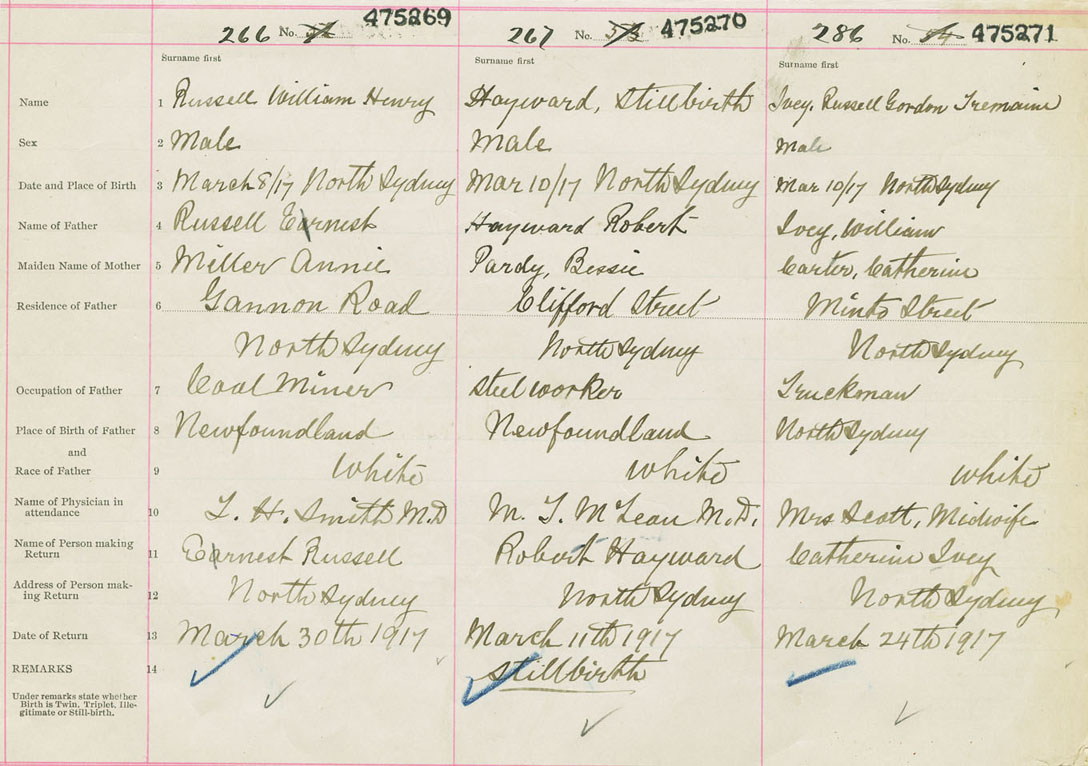 266 No. 475269 267 No. 475270 286 No. 475271
Surname first Surname first Surname first
Name 1 Russell William Henry Hayward, Stillbirth Ivey, Russell Gordon Tremaine
Sex 2 Male Male Male
Date and Place of Birth 3 March 8/17 North Sydney Mar 10/17 North Sydney Mar 10/17 North Sydney
Name of Father 4 Russell Earnest Hayward Robert Ivey, William
Maiden Name of Mother 5 Miller Annie Pardy, Bessie Carter, Catherine
Residence of Father 6 Gannon Road Clifford Street Minto Street
North Sydney North Sydney North Sydney
Occupation of Father 7 Coal Miner Steelworker Truckman
Place of Birth of Father 8 Newfoundland Newfoundland North Sydney
and
Race of Father 9 White White White
Name of Physician in
attendance 10 L. H. Smith M.D M. T. McLean M.D. Mrs Scott, Midwife
Name of Person making
Return 11 Earnest Russell Robert Hayward Catherine Ivey
Address of Person mak-
ing Return 12 North Sydney North Sydney North Sydney
Date of Return 13 March 30th 1917 March 11th 1917 March 24th 1917
REMARKS 14 Stillbirth
Under remarks state whether
Birth is Twin, Triplet, Ille-
gitimate or Still-birth.